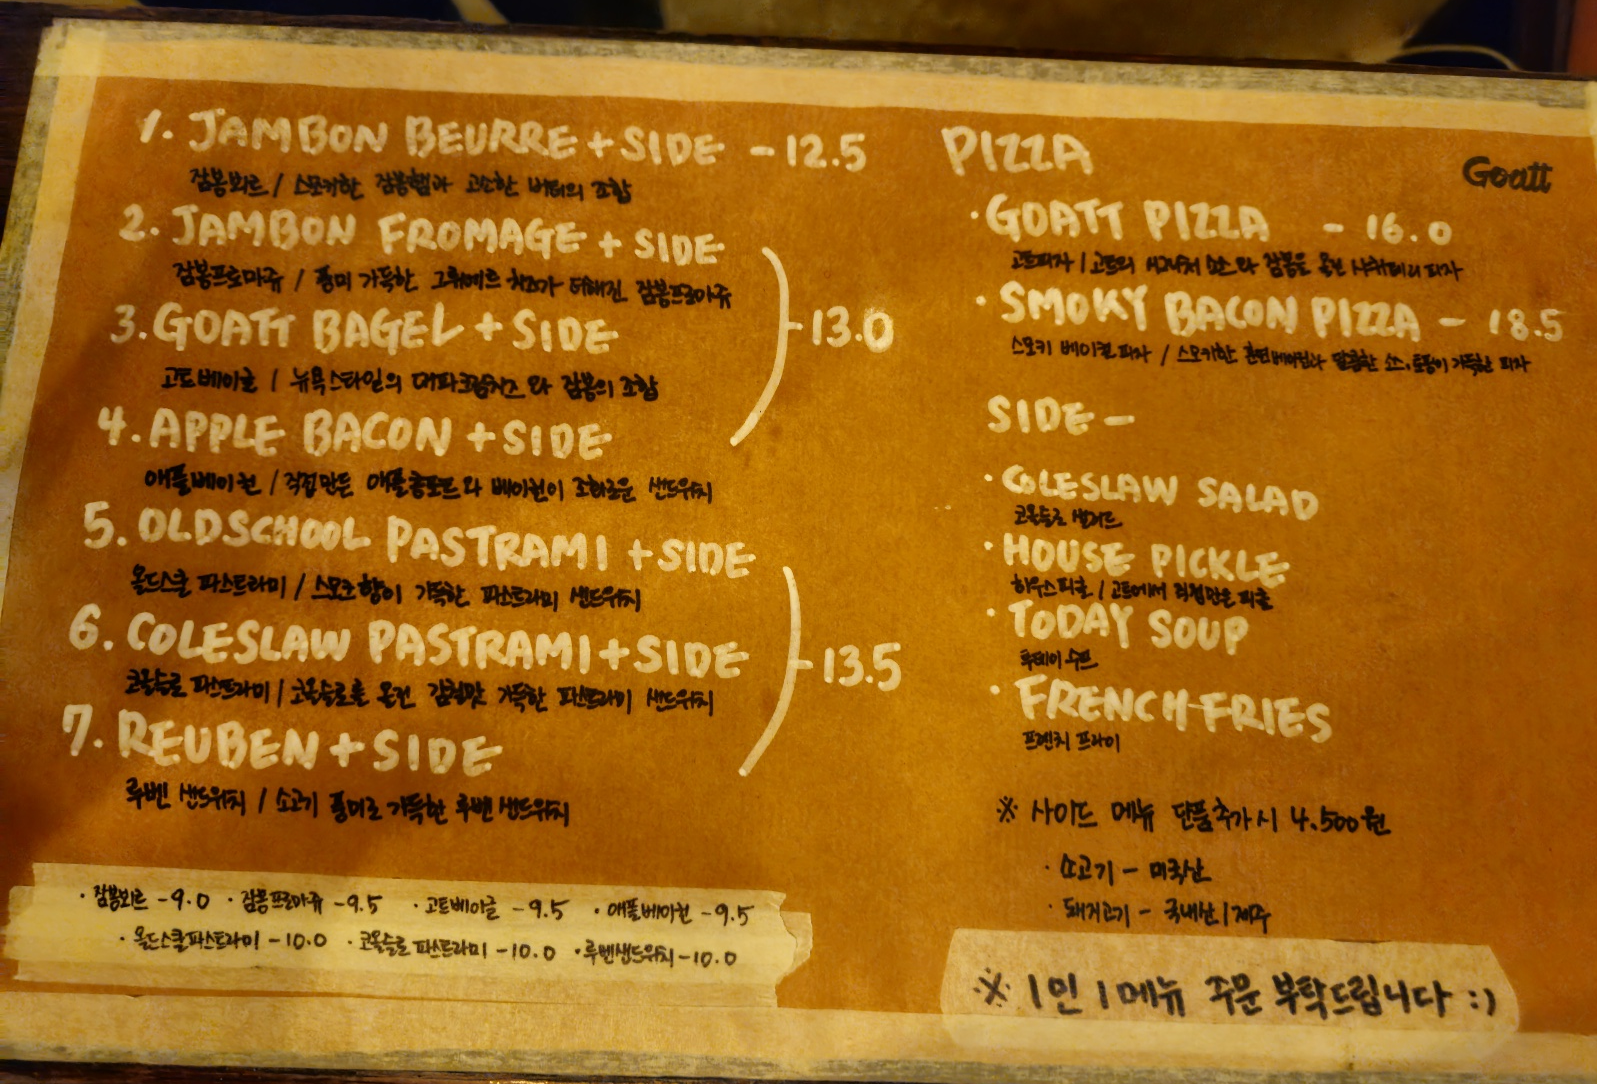 1. JAMBON BEURRE + SIDE - 12.5
잠봉뵈르 / 스모키한 잠봉햄과 고소한 버터의 조합
2. JAMBON FROMAGE + SIDE
잠봉프로마쥬 / 풍미 가득한 그뤼에르 치즈가 더해진 잠봉프로마쥬
3. GOATT BAGEL + SIDE
고트베이글 / 뉴욕스타일의 대파크림치즈와 잠봉의 조합
13.0
4. APPLE BACON + SIDE
애플베이컨 / 직접만든 애플콩포트와 베이컨이 조화로운 샌드위치
5. OLDSCHOOL PASTRAMI + SIDE
올드스쿨 파스트라미 / 스모크향이 가득한 파스트라미 샌드위치
6. COLESLAW PASTRAMI + SIDE
코울슬로 파스트라미 / 코울슬로를 올린 감칠맛 가득한 파스트라미 샌드위치
13.5
7. REUBEN + SIDE
루벤 샌드위치 / 소고기 풍미로 가득한 루벤 샌드위치
· 잠봉뵈르 - 9.0 · 잠봉프로마쥬 - 9.5 · 고트베이글 - 9.5 · 애플베이컨 - 9.5
· 올드스쿨파스트라미 - 10.0 · 코울슬로 파스트라미 - 10.0 · 루벤샌드위치 - 10.0
PIZZA
Goatt
· GOATT PIZZA - 16.0
고트피자 / 고트의 시그니처 소스와 잠봉을 올린 피자
· SMOKY BACON PIZZA - 18.5
스모키 베이컨 피자 / 스모키한 훈연베이컨과 달콤한 소스, 토핑이 가득한 피자
SIDE -
· COLESLAW SALAD
코울슬로 샐러드
· HOUSE PICKLE
하우스피클 / 고트에서 직접만든 피클
· TODAY SOUP
투데이 수프
· FRENCH-FRIES
프렌치 프라이
※ 사이드 메뉴 단품추가시 4.500원
· 소고기 - 미국산
· 돼지고기 - 국내산 / 제주
※ 1인 1메뉴 주문 부탁드립니다 :)